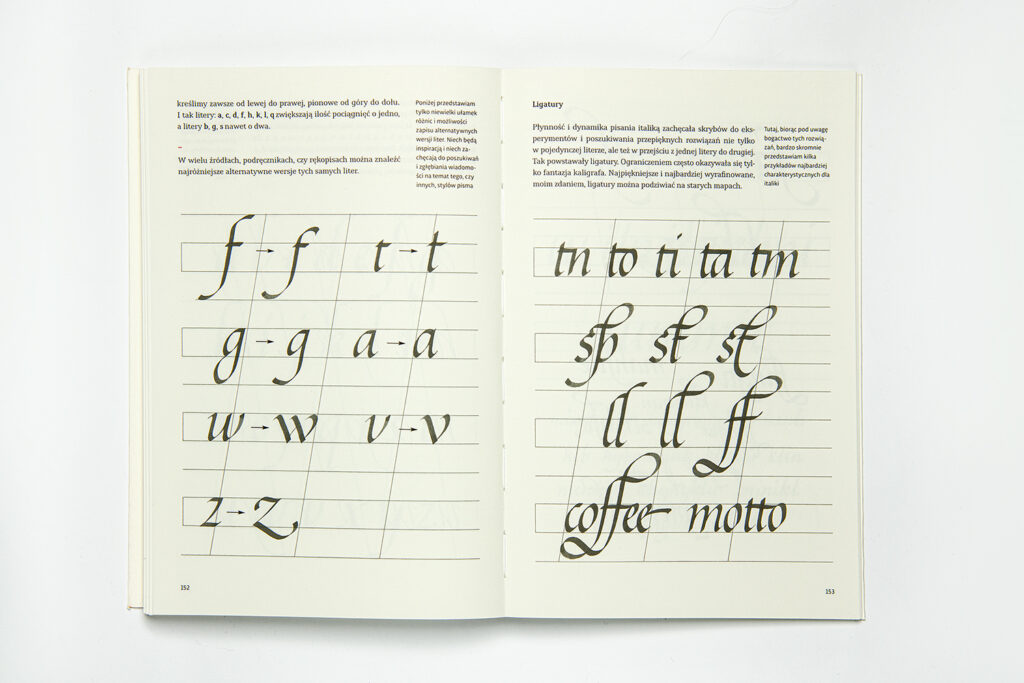 kreślimy zawsze od lewej do prawej, pionowe od góry do dołu.
I tak litery: a, c, d, f, h, k, l, q zwiększają ilość pociągnięć o jedno,
a litery b, g, s nawet o dwa.
–
W wielu źródłach, podręcznikach, czy rękopisach można znaleźć
najróżniejsze alternatywne wersje tych samych liter.
Poniżej przedstawiam
tylko niewielki ułamek
różnic i możliwości
zapisu alternatywnych
wersji liter. Niech będą
inspiracją i niech za-
chęcają do poszukiwań
i zgłębiania wiadomo-
ści na temat tego, czy
innych, stylów pisma
f → f t → t
g → g a → a
w → w v → v
z → z
152
Ligatury
Płynność i dynamika pisania italiką zachęcała skrybów do eks-
perymentów i poszukiwania przepięknych rozwiązań nie tylko
w pojedynczej literze, ale też w przejściu z jednej litery do drugiej.
Tak powstawały ligatury. Ograniczeniem często okazywała się tyl-
ko fantazja kaligrafa. Najpiękniejsze i najbardziej wyrafinowane,
moim zdaniem, ligatury można podziwiać na starych mapach.
Tutaj, biorąc pod uwagę
bogactwo tych rozwią-
zań, bardzo skromnie
przedstawiam kilka
przykładów najbardziej
charakterystycznych dla
italiki
tn to ti ta tm
sp st st
ll ll ff
coffee motto
153